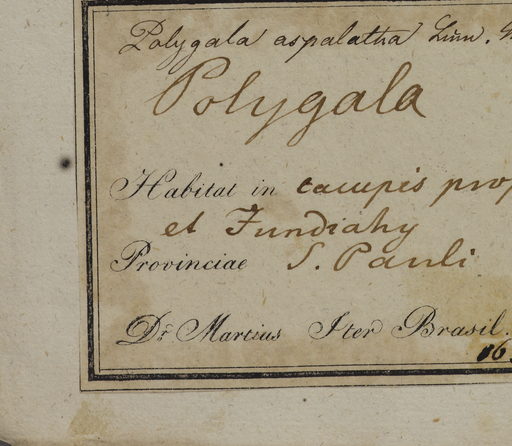 Polygala aspalatha Linn.
Polygala
Habitat in campis prop
et Jundiahy
Provinciae S. Pauli
Dr. Martius Iter Brasil.